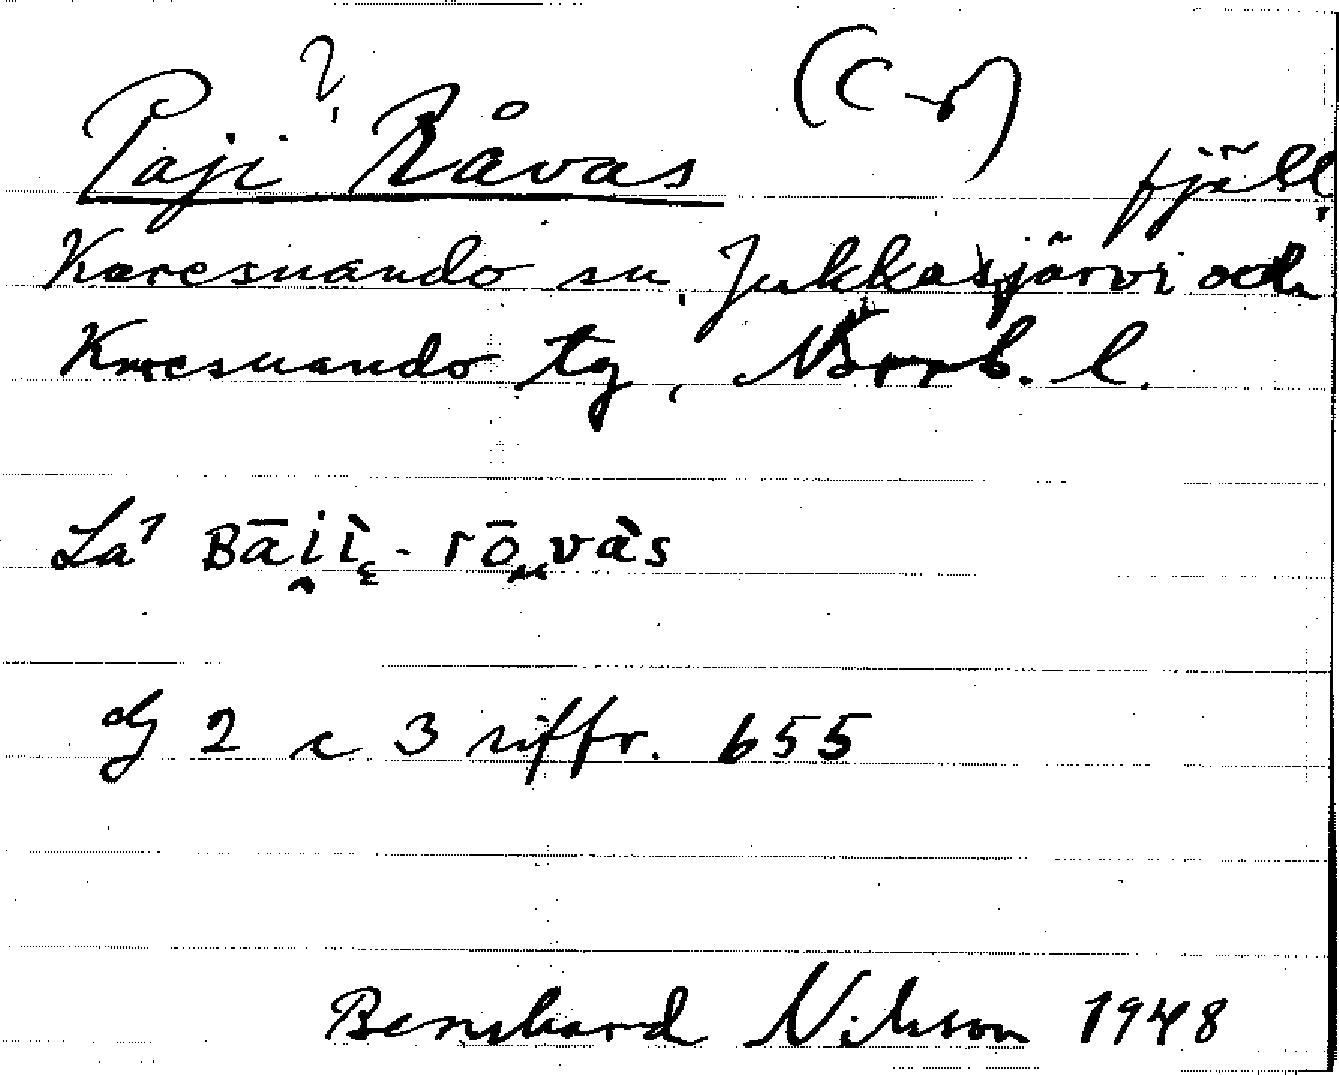 Paji ? Råvas (C-r) fjäll
Karesuando sn, Jukkasjärvi och
Karesuando tg, Norrb. l.
La' Bāi̭ì̜ - rōvàs
dG 2 c 3 siffr. 655
Bernhard Nilsson 1948